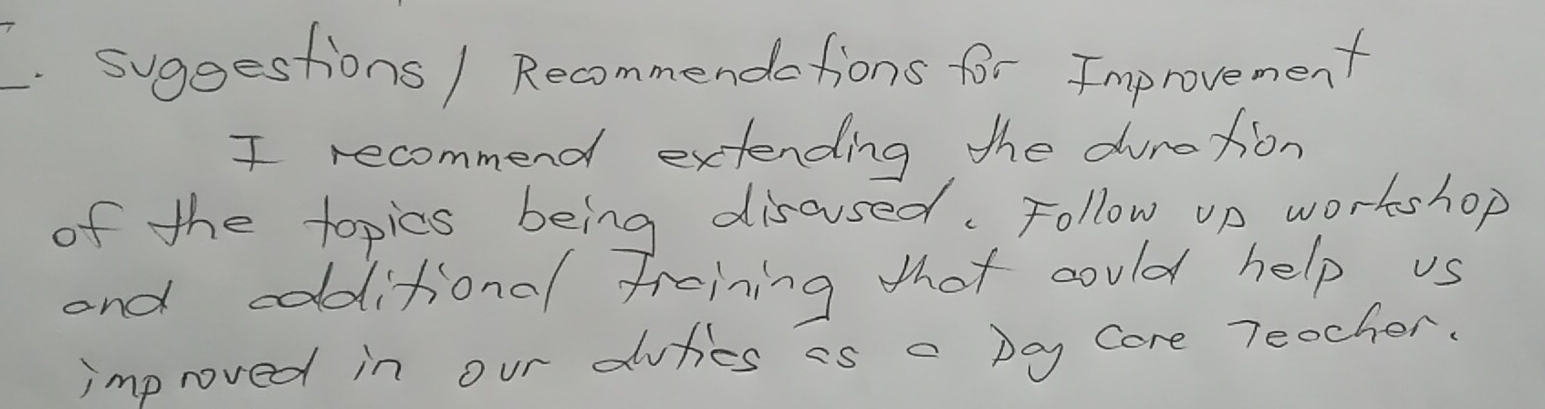 I. Suggestions / Recommendations for Improvement
I recommend extending the duration
of the topics being discused. Follow up workshop
and additional training that could help us
improved in our duties as a Day Care Teacher.